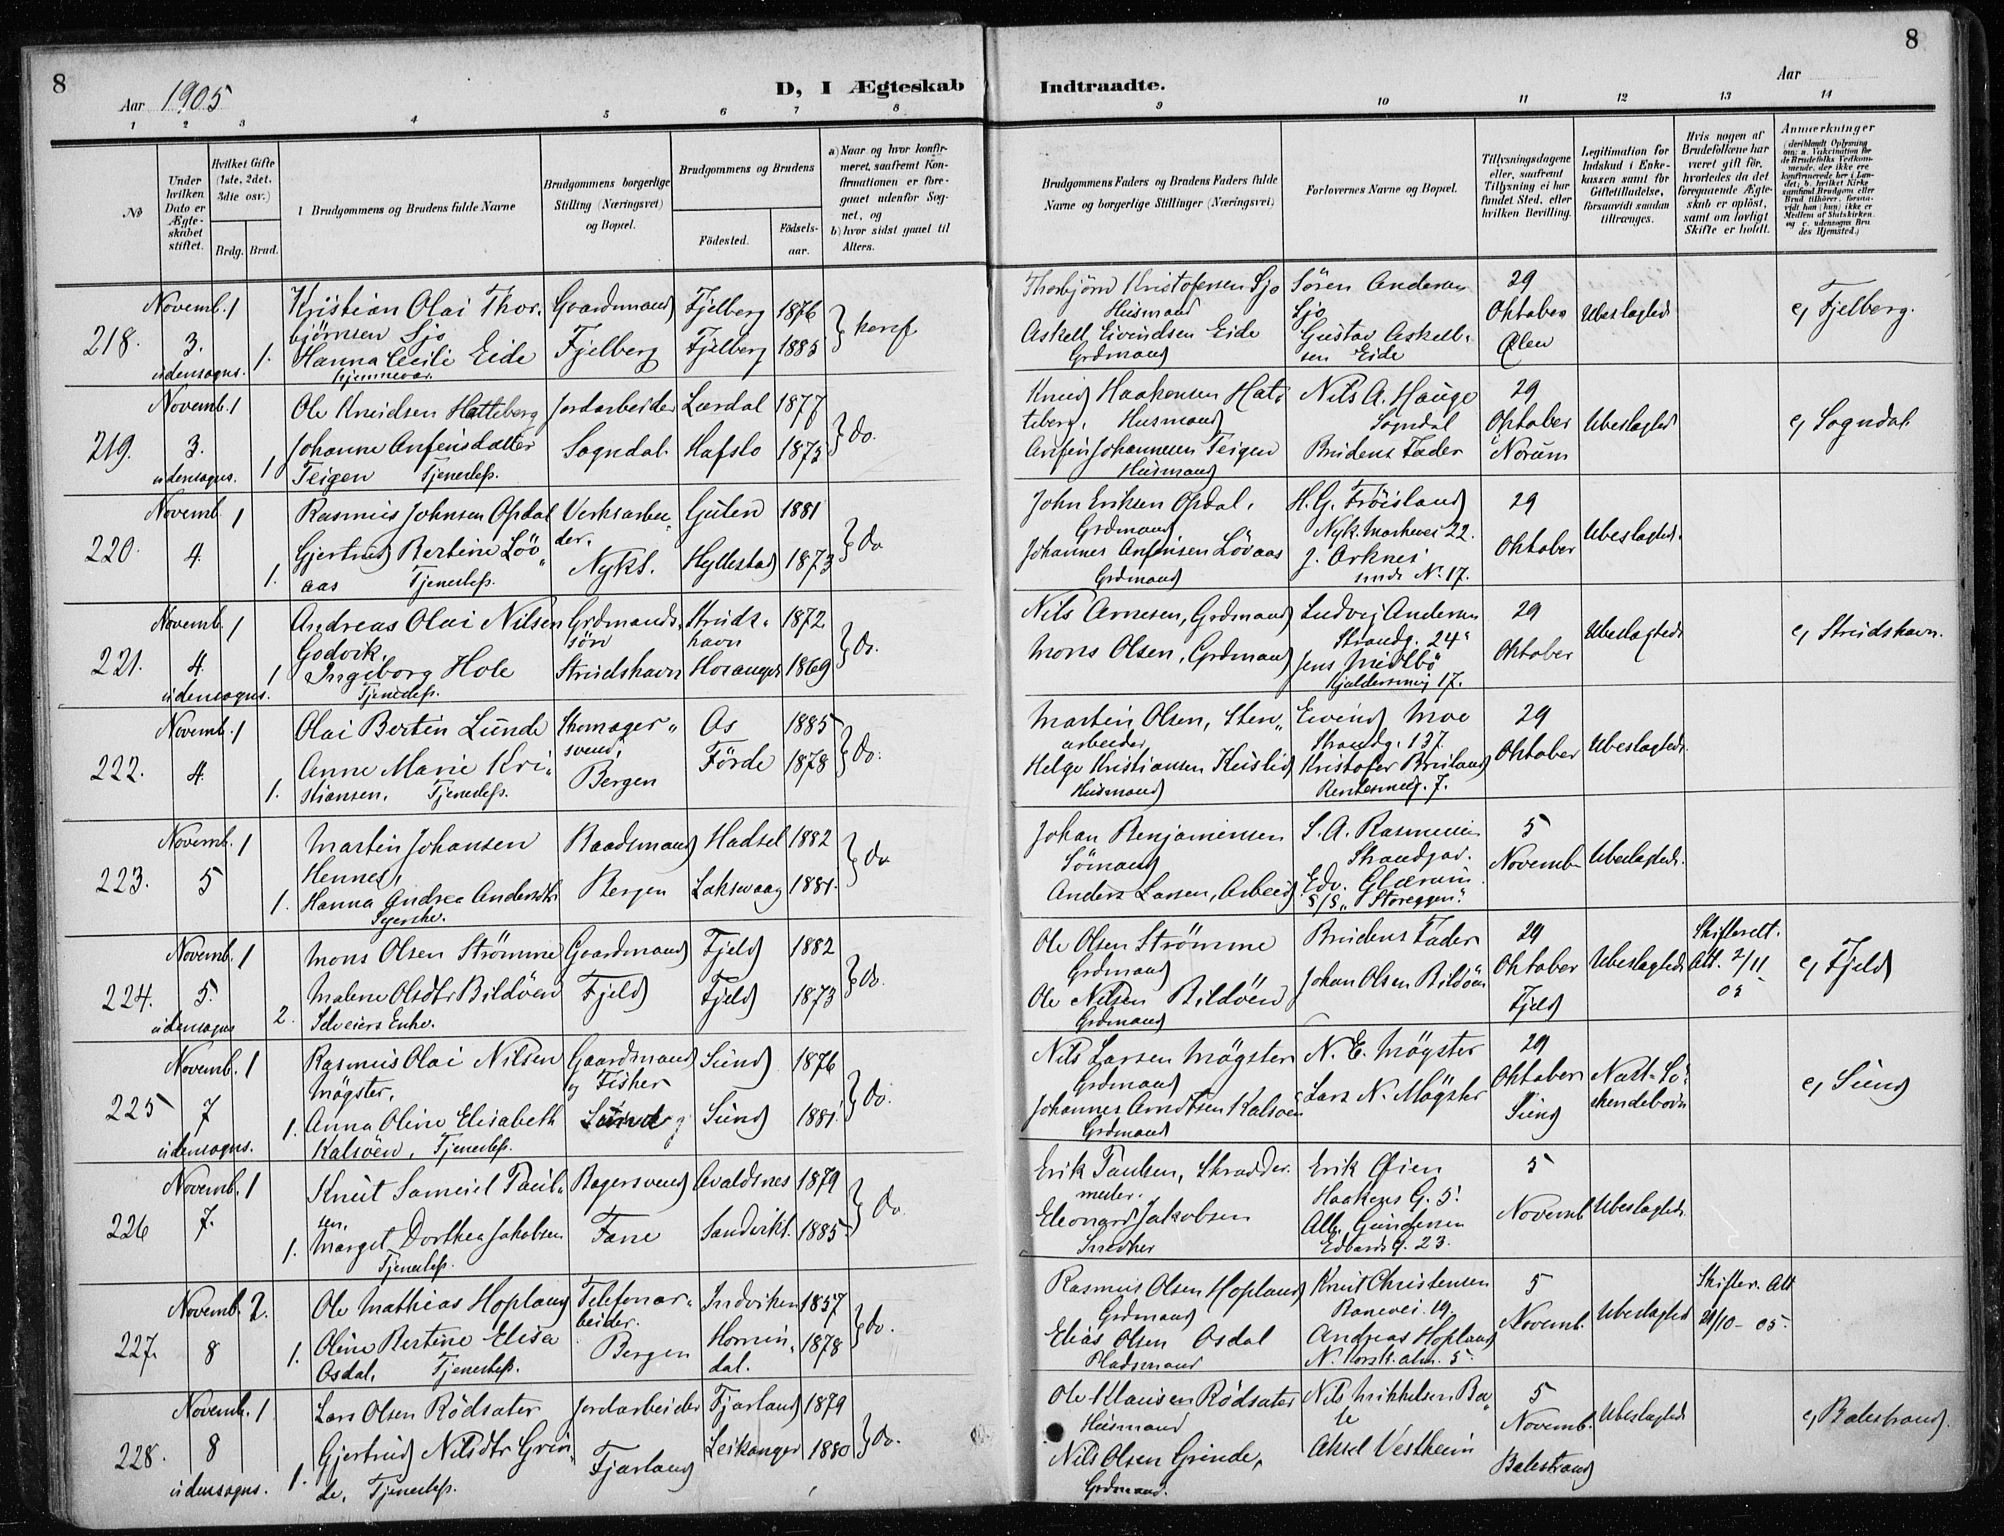 8
Aar 1905
D, I Ægteskab
Indtraadte.
Aar
8
1 2 3 4 5 6 7 8 9 10 11 12 13 14
No
Under hvilken Dato er Ægteskabet stiftet.
Hvilket Gifte (1ste, 2det, 3die osv.)
Brdg. Brud.
Brudgommens og Brudens fulde Navne
Brudgommens borgerlige Stilling (Næringsvei) og Bopæl.
Brudgommens og Brudens
Födested.
Födsels-aar.
a) Naar og hvor konfirmeret, saafremt Konfirmationen er foregaaet udenfor Sognet, og
b) hvor sidst gaaet til Alters.
Brudgommens Faders og Brudens Faders fulde Navne og borgerlige Stillinger (Næringsvei)
Forlovernes Navne og Bopæl.
Tillysningsdagene eller, saafremt Tillysning ei har fundet Sted, efter hvilken Bevilling.
Legitimation for Indskud i Enkekassen samt for Giftetilladelse, forsaavidt saadan tiltrænges.
Hvis nogen af Brudefolkene har været gift för, hvorledes da det foregaaende Ægteskab er oplöst, samt om lovligt Skifte er holdt.
Anmerkninger
218.
Novemb. 3. udensogns.
1 1.
Kristian Olai Thorbjörnsen Sjo
Hanna Cecili Eide
Gaardmand
Fjelberg
Fjelberg 1876
Fjelberg 1885
konf
Thorbjörn Kristofersen Sjo
Husmand
Askell Eivindsen Eide
Grdmand
Sören Andersen
Sjo
Gustav Askellsen Eide
29
Oktober
Ølen
Ubeslægted
c, Fjelberg.
219.
Novemb. 3. udensogns.
1 1
Ole Knudsen Hatteberg
Johanne Anfinsdatter
Teigen Tjenestep.
Jordarbeider
Sogndal
Lærdal 1877
Hafslo 1875
do.
Knud Haakonsen Hatteberg, Husmand
Anfin Johannesen Teigen
Husmand
Nils A. Hauge
Sogndal
Brudens Fader
29
Oktober
i Norum
Ubeslægted
c, Sogndal
220.
Novemb. 4.
1 1.
Rasmus Johnsen Opdal
Gjertrud Bertine Lövaas Tjenestep.
Verksarbeider.
Nykt.
Gulen 1881
Hyllestad 1873
do
John Eriksen Opdal,
Grdmand
Johannes Anfinsen Lövaas
Grdmand
H. G. Fröisland
Nyk. Markevei 22.
J. Arknes
sunds No. 17.
29
Oktober
Ubeslægted.
221.
Novemb. 4. udensogns.
1 1
Andreas Olai Nilsen
Godvik,
Ingeborg Hole
Tjenestep.
Grdmandssön
Strudshavn
Strudshavn 1872
Hosanger 1869
do.
Nils Arnesen, Grdmand
Mons Olsen, Grdmand
Ludvig Andersen
Strandg. 24
Jens Midtbö
17.
29
Oktober
Ubeslægted
c, Strudshavn.
222.
Novemb. 4.
1 1.
Olai Bertin Lunde
Anne Marie Kristiansen, Tjenestep.
Skomagersvend,
Bergen
Os 1885
Förde 1878
do.
Martin Olsen, Stenarbeider
Helge Kristiansen
Husmand
Eivind Moe
Strandg. 137.
Kristofer
7.
29
Oktober
Ubeslægted.
223.
Novemb. 5
1 1.
Martin Johansen
Hennes,
Hanna Andrea Andersdtr
Syerske.
Baadsmand
Bergen
Hadsel 1882
Laksevaag 1881.
do
Johan Benjaminsen
Sömand
Anders Larsen, Arbeid
S. A. Rasmussen
Edv.
S/S "Storeggen."
5
Novemb
Ubeslægted.
224.
Novemb. 5. udensogns
1 2.
Mons Olsen Strömme
Malene Olsdtr Bildöen
Selveiers Enke.
Gaardmand
Fjeld
Fjeld 1882
Fjeld 1873
do.
Ole Olsen Strömme
Grdmand
Ole Nilsen Bildöen
Grdmand
Brudens Fader
Johan Olsen Bildöen
29
Oktober
Fjeld
Ubeslægted
Skifteret.
Att. 2/11
05
c, Fjeld
225
Novemb. 7 udensogns.
1 1.
Rasmus Olai Nilsen
Mögster,
Anna Oline Elisabeth
Kalsöen, Tjenestep.
Gaardmand
og Fisker
Sund
Sund 1876
Sund 1881.
do.
Nils Larsen Mögster
Grdmand
Johannes Arndtsen Kalsöen
Grdmand
N. E. Mögster
Lars N. Mögster
29
Oktober
Sund
Næst-Söskendebörn
c, Sund
226
Novemb. 7.
1 1.
Knut Samuel Paulsen.
Marget Dorthea Jakobsen
Tjenestep.
Bagersvend
Fane
Avaldsnes 1879
Sandvikk. 1885
do.
Erik Paulsen, Skræddermester.
Eleonard Jakobsen
Snedker
Erik Øien
Haakons G. 5.
Alb. Gundersen
Edvards G. 23.
5
Novemb
Ubeslægted.
227.
Novemb. 8
2. 1.
Ole Mathias Hopland
Oline Bertine Elisa
Osdal, Tjenestep.
Telefonarbeider.
Bergen
Indviken 1857
Hornindal. 1878
do.
Rasmus Olsen Hopland
Grdmand
Elias Olsen Osdal
Pladsmand
Knut Christensen
19.
Andreas Hopland
N. Korsk. alm. 5.
5
Novemb.
Ubeslægted
Skifter. Att
21/10-05.
228.
Novemb. 8 udensogns.
1 1.
Lars Olsen Rödsæter
Gjertrud Nilsdtr Grinde, Tjenestep.
Jordarbeider
Fjærland
Fjærland 1879
Leikanger 1880
do.
Ole Klausen Rödsæter
Husmand
Nils Olsen Grinde,
Grdmand.
Nils Mikkelsen
Aksel Vestheim
5
Novemb.
Balestrand
Ubeslægted
c, Balestrand.